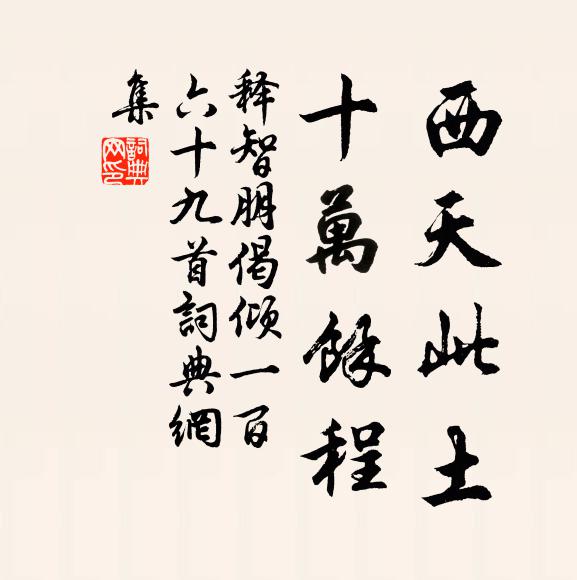 西天此土
十萬餘程
释智朋偈倾一百
六十九首詞典網
集
詞典
网印